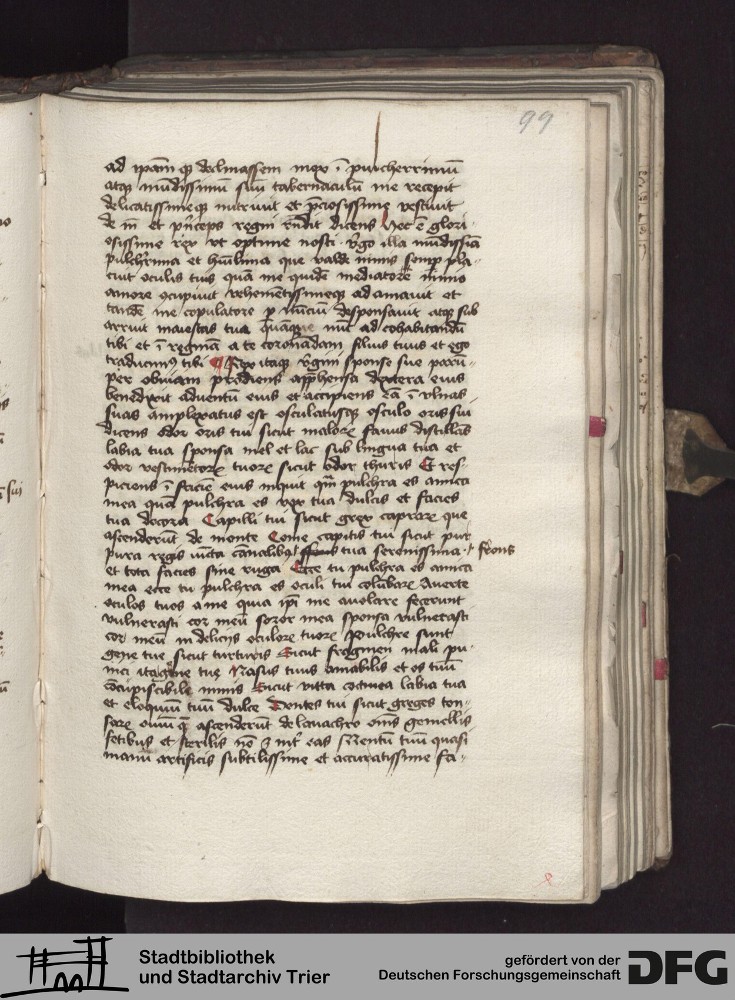 99
ad ipam qz declinassem mox ī pulcherrimū
atqz mūdissimū suū tabernaculū me recepit
delicatissimeqz nutriuit et p̄ciosissime vestiuit
de m̄ et p̄nceps regni rn̄dit dicens Hec ē glori-
osissime rex vt optime nosti v̄go illa mūdissīa
pulchr̄ima et hūilima que valde nimis semp pla-
cuit oculis tuis quā me quidē mediatore nimio
amore ꝯcupiuit vehemētissimeqz adamauit et
tandē me copulatore p nūciū desponsauit atqz sub
arrauit maiestas tua quāqz nūc ad cohabitandū
tibi et ī reginā a te coronādam filius tuus et ego
traducimꝰ tibi Rex itaqz v̄gini sponse sue parū-
per obuiam prodiens app̄hensa dextera eius
benedixit aduentū eius et accipiens eā ī vlnas
suas amplexatus est osculatusqz osculo oris sui
dicens odor oris tui sicut maloꝝ fauus distillās
labia tua sponsa mel et lac sub lingua tua et
odor vestimētoꝝ tuoꝝ sicut odor thuris Et res-
piciens ī faciē eius inquit qm̄ pulchra es amica
mea quā pulchra es vox tua dulcis et facies
tua decora Capilli tui sicut grex capraꝝ que
ascenderūt de monte Come capitis tui sicut pur
pura regis iūcta canalibꝫ tua serenissima frōns
et tota facies sine ruga Ecce tu pulchra es amica
mea ecce tu pulchra es oculi tui colūbaꝝ Auerte
oculos tuos a me quia ipī me auolare fecerunt
vulnerasti cor meū soror mea sponsa vulnerasti
cor meū in delicijs oculoꝝ tuoꝝ Pulchre sunt
gene tue sicut turturis Sicut fragmen mali pu-
nici ita gene tue Nasus tuus amabilis et os tuū
ꝯcupiscibile nimis Sicut vitta coccinea labia tua
et eloquiū tuū dulce Dentes tui sicut greges ton-
saꝝ ouiū q̄ ascenderūt de lauachro oms gemellis
fetibus et sterilis nō ē int̄ eas Mentū tuū quasi
manū artificis subtilissime et accuratissime fa-
Stadtbibliothek
und Stadtarchiv Trier
gefördert von der
Deutschen Forschungsgemeinschaft
DFG